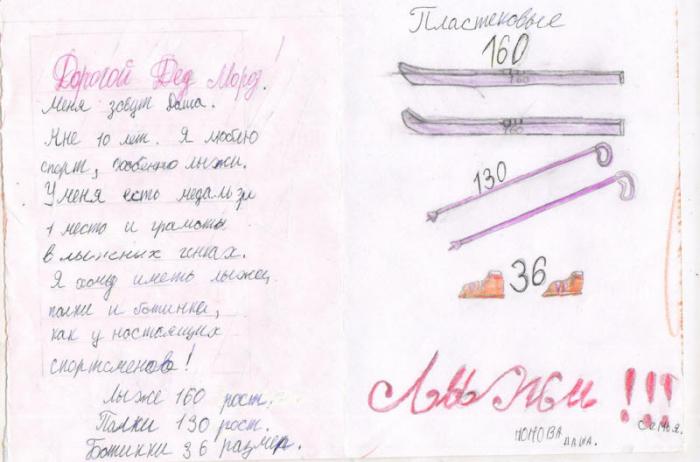 Дорогой Дед Мороз!
Меня зовут Даша.
Мне 10 лет. Я люблю
спорт, особенно лыжи.
У меня есть медаль за
1 место и грамоты
в лыжных гонках.
Я хочу иметь лыжи,
палки и ботинки,
как у настоящих
спортсменов!
лыже 160 рост.
Палки 130 рост.
Ботинки 36 размер.
Пластековые
160
160
130
36
Лыжи!!!
Даша.